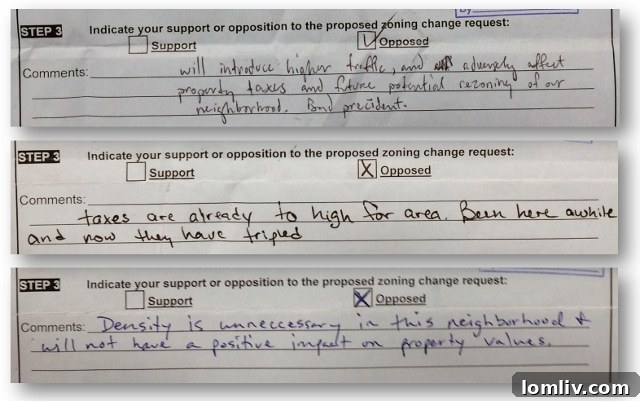 STEP 3
Indicate your support or opposition to the proposed zoning change request:
Support
Opposed
Comments: will introduce higher traffic, and adversely affect
property taxes and future potential rezoning of our
neighborhood. Bad precident.
STEP 3
Indicate your support or opposition to the proposed zoning change request:
Support
X Opposed
Comments:
taxes are already to high for area. Been here awhile
and now they have tripled
STEP 3
Indicate your support or opposition to the proposed zoning change request:
Support
X Opposed
Comments: Density is unneccessary in this neighborhood &
will not have a positive impact on property values.
lomliv.com